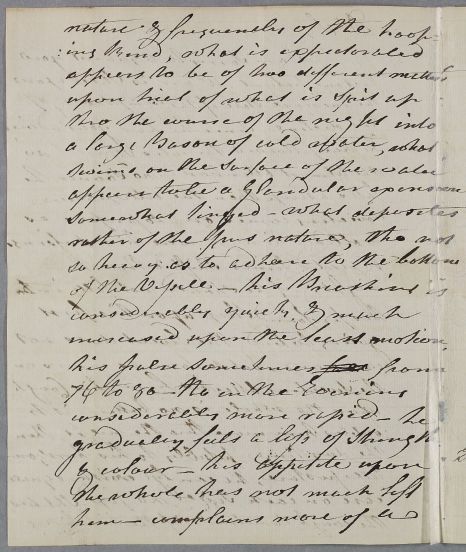 nature & frequently of the hoop-
:ing kind, what is expectorated
appears to be of two different
upon trial of what is spit up
thro the course of the night into
a large bason of cold water, what
swims on the surface of the water
appears to be a Glandular
somewhat tinged - what deposites
rather of the Pus nature, tho not
so heavy as to adhere to the bottom
of the Vessel - his Breathing is
considerably quick & much
increased upon the least motion,
his pulse sometimes from
76 to 80 - tho in the Evening
considerably more rapid - he
gradually feels a loss of strength
& colour - his appetite upon
the whole has not much left
him - complains more of a